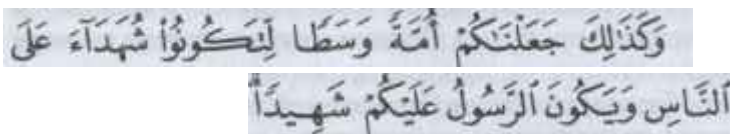 وَكَذَٰلِكَ جَعَلْنَٰكُمْ أُمَّةً وَسَطًا لِّتَكُونُوا۟ شُهَدَآءَ عَلَى
ٱلنَّاسِ وَيَكُونَ ٱلرَّسُولُ عَلَيْكُمْ شَهِيدًا ۗ